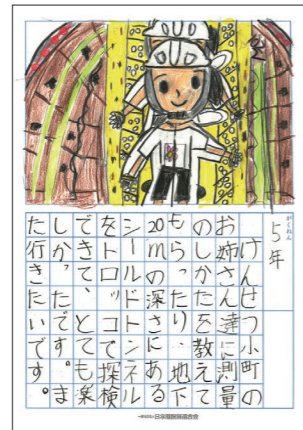 がくねん
5年
けんせつ小町の
お姉さん達に測量
のしかたを教えて
もらったり、地下
20mの深さにある
シールドトンネル
をトロッコで探検
できて、とても楽
しかったです。ま
た行きたいです。